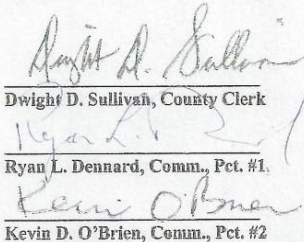 Dwight D. Sullivan
Dwight D. Sullivan, County Clerk
Ryan L. D
Ryan L. Dennard, Comm., Pct. #1
Kevin O'Brien
Kevin D. O'Brien, Comm., Pct. #2